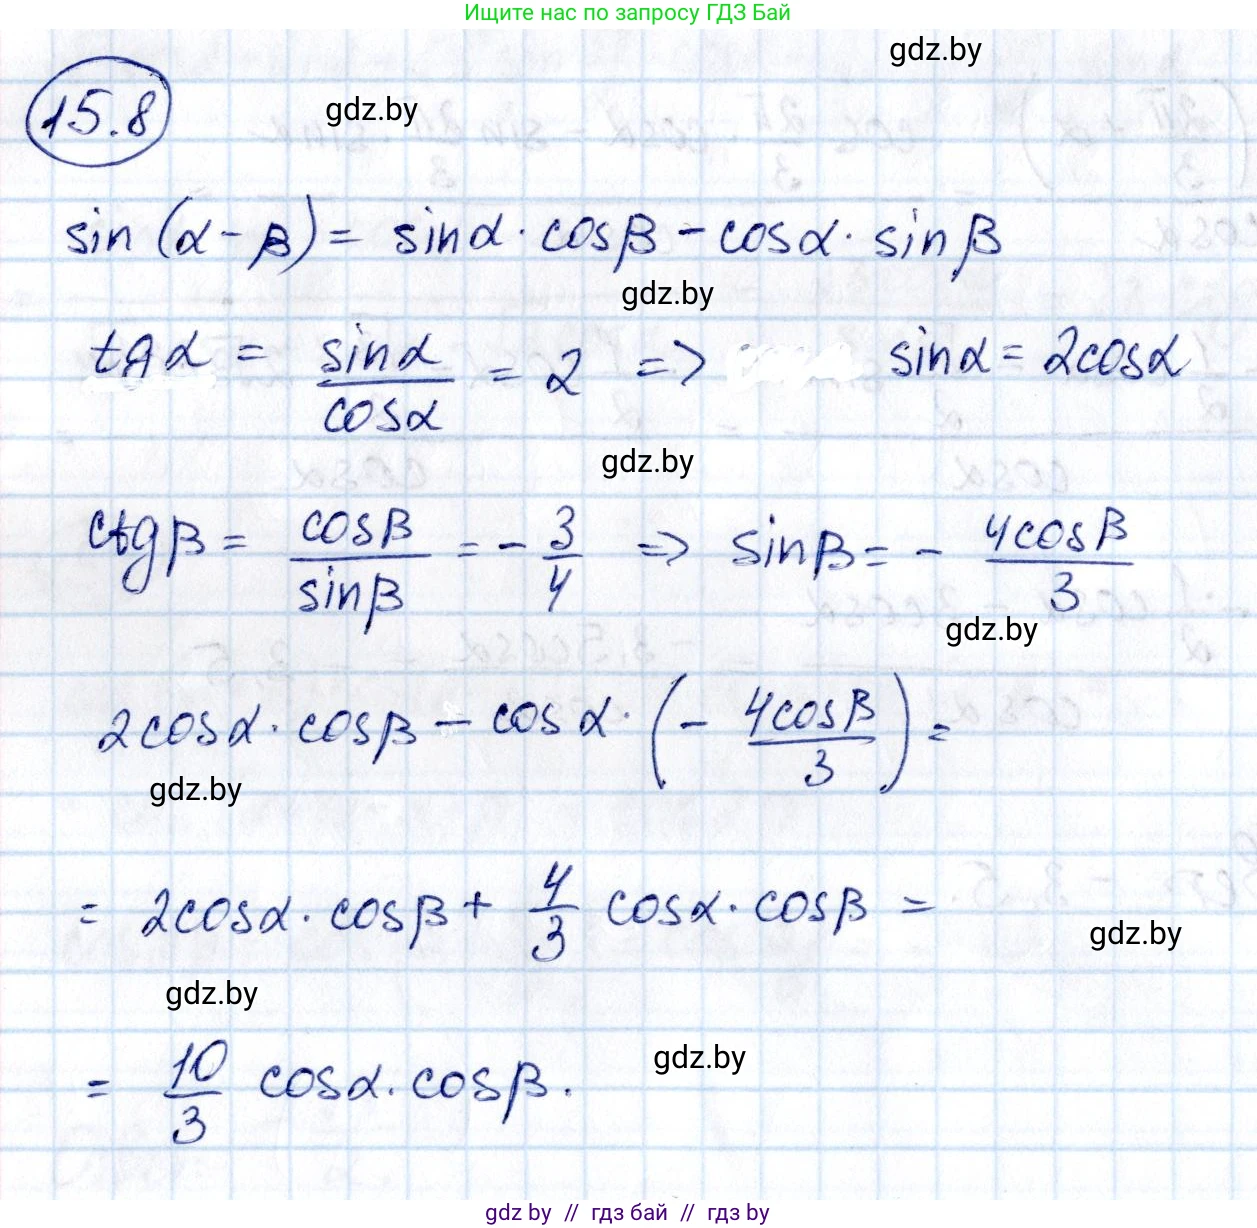 Ищите нас по запросу ГДЗ Бай
gdz.by
15.8
gdz.by
sin(α-β) = sinα · cosβ - cosα · sinβ
gdz.by
tgα = sinα/cosα = 2 => sinα = 2cosα
gdz.by
ctgβ = cosβ/sinβ = -3/4 => sinβ = - 4cosβ/3
gdz.by
2cosα · cosβ - cosα · (- 4cosβ/3) =
gdz.by
= 2cosα · cosβ + 4/3 cosα · cosβ =
gdz.by
gdz.by
= 10/3 cosα · cosβ.
gdz.by
gdz by // гдз бай // гдз by